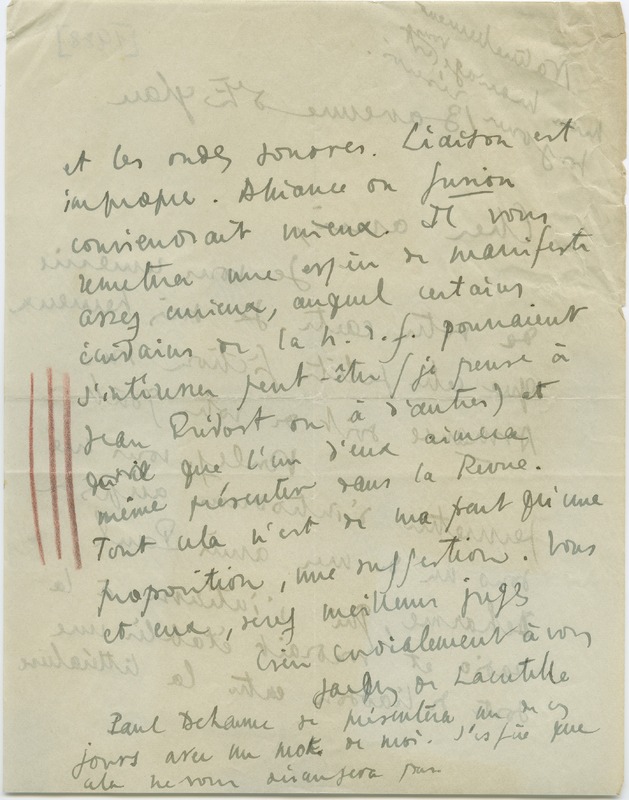 et les ondes sonores. Liaison est
impropre. Alliance ou fusion
conviendrait mieux. Il vous
remettra une espèce de manifeste
assez curieux, auquel certains
écrivains de la n.r.f. pourraient
s'intéresser peut-être (je pense à
Jean Prévost ou à d'autres) et
que l'un d'eux aimera
même présenter dans la Revue.
Tout cela n'est de ma part qu'une
proposition, une suggestion. Vous
et eux, serez meilleurs juges
Bien cordialement à vous
Jacques de Lacretelle
Paul Deharme se présentera un de ces
jours avec un mot de moi. J'espère que
cela ne vous dérangera pas